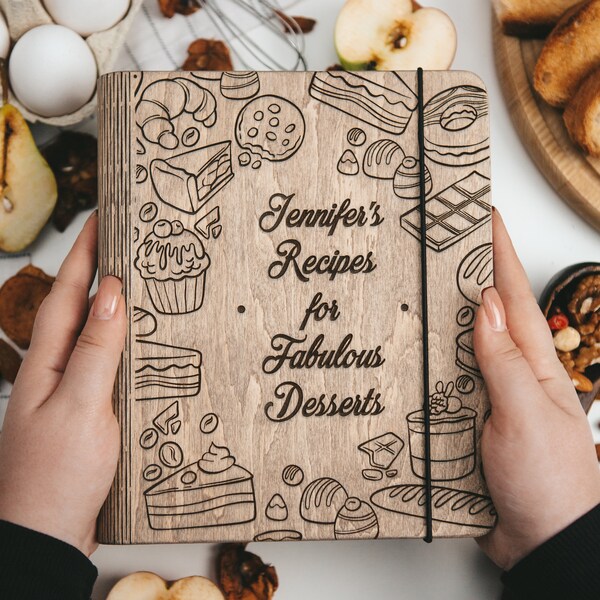 Jennifer's
Recipes
for
Fabulous
Desserts